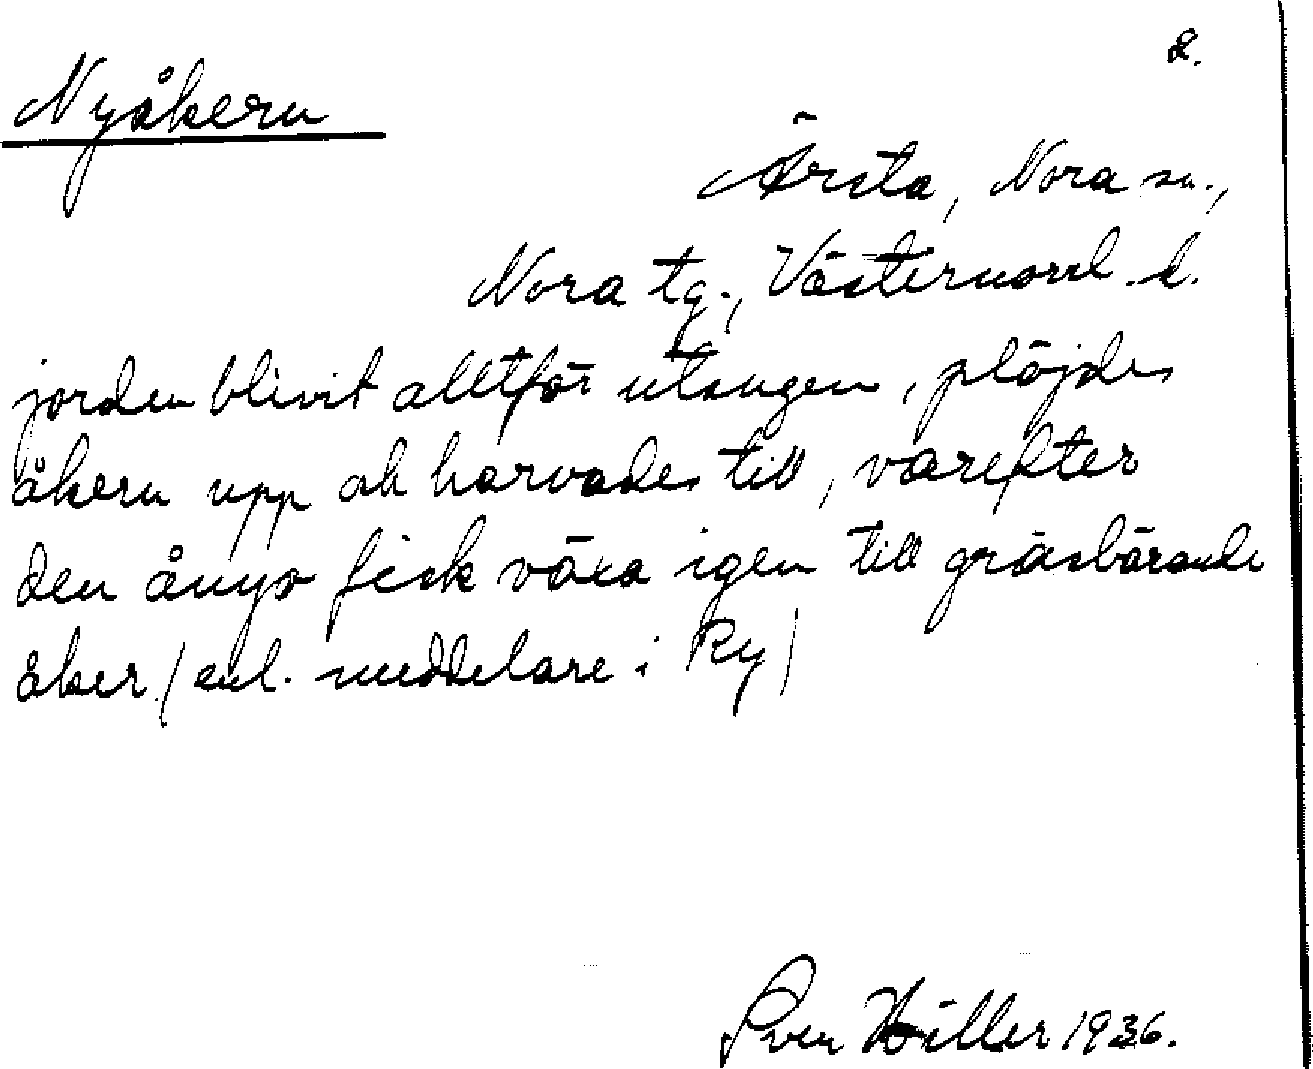 2.
Nyåkern
Ärsta, Nora sn.,
Nora tg., Västernorrl. l.
jorden blivit alltför utsugen, plöjdes
åkern upp ok harvades till, varefter
den ånyo fick växa igen till gräsbärande
åker. (enl. meddelare i Ry)
Sven Hiller 1936.